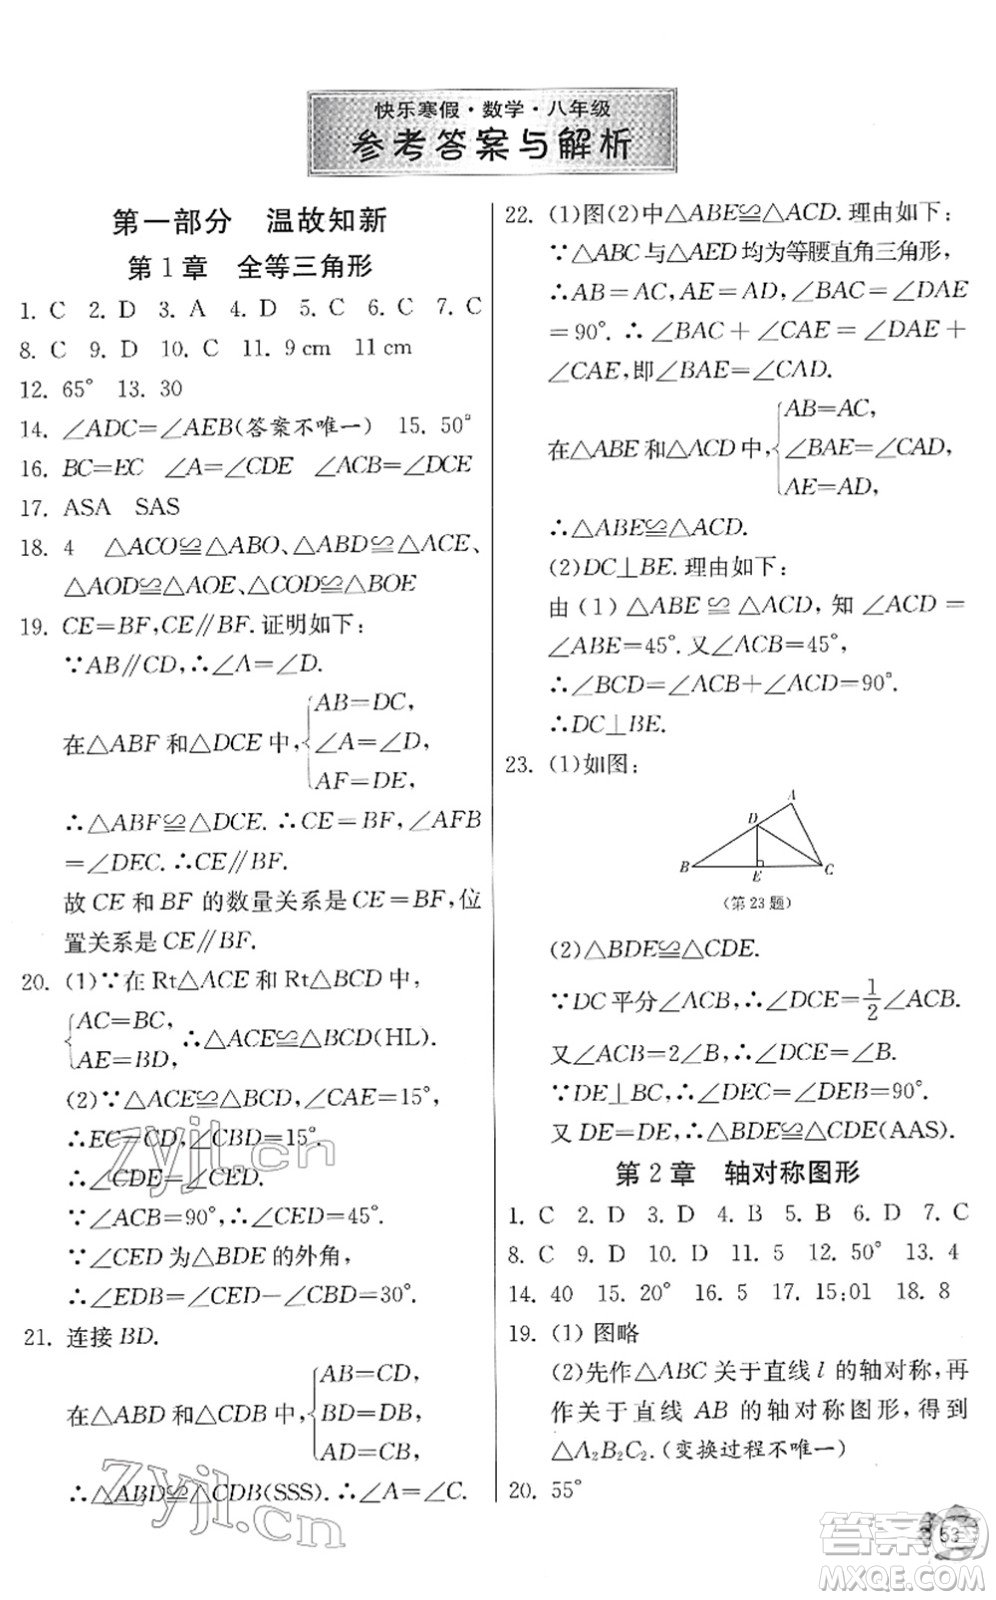 快乐寒假·数学·八年级
参考答案与解析
第一部分 温故知新
第1章 全等三角形
1. C 2. D 3. A 4. D 5. C 6. C 7. C
8. C 9. D 10. C 11. 9 cm 11 cm
12. 65° 13. 30
14. ∠ADC=∠AEB(答案不唯一) 15. 50°
16. BC=EC ∠A=∠CDE ∠ACB=∠DCE
17. ASA SAS
18. 4 △ACO≌△ABO、△ABD≌△ACE、
△AOD≌△AOE、△COD≌△BOE
19. CE=BF,CE∥BF.证明如下:
∵AB∥CD,∴∠A=∠D.
在△ABF和△DCE中,
AB=DC,
∠A=∠D,
AF=DE,
∴△ABF≌△DCE.∴CE=BF,∠AFB
=∠DEC.∴CE∥BF.
故CE和BF的数量关系是CE=BF,位
置关系是CE∥BF.
20. (1)∵在Rt△ACE和Rt△BCD中,
AC=BC,
AE=BD,
∴△ACE≌△BCD(HL).
(2)∵△ACE≌△BCD,∠CAE=15°,
∴EC=CD,∠CBD=15°.
∴∠CDE=∠CED.
∵∠ACB=90°,∴∠CED=45°.
∵∠CED为△BDE的外角,
∴∠EDB=∠CED-∠CBD=30°.
21. 连接BD.
在△ABD和△CDB中,
AB=CD,
BD=DB,
AD=CB,
∴△ABD≌△CDB(SSS).∴∠A=∠C.
22. (1)图(2)中△ABE≌△ACD.理由如下:
∵△ABC与△AED均为等腰直角三角形,
∴AB=AC,AE=AD,∠BAC=∠DAE
=90°.∴∠BAC+∠CAE=∠DAE+
∠CAE,即∠BAE=∠CAD.
在△ABE和△ACD中,
AB=AC,
∠BAE=∠CAD,
AE=AD,
∴△ABE≌△ACD.
(2)DC⊥BE.理由如下:
由(1)△ABE≌△ACD,知∠ACD=
∠ABE=45°.又∠ACB=45°,
∴∠BCD=∠ACB+∠ACD=90°.
∴DC⊥BE.
23. (1)如图:
A
D
B
E
C
(第23题)
(2)△BDE≌△CDE.
∵DC平分∠ACB,∴∠DCE=1/2∠ACB.
又∠ACB=2∠B,∴∠DCE=∠B.
∵DE⊥BC,∴∠DEC=∠DEB=90°.
又DE=DE,∴△BDE≌△CDE(AAS).
第2章 轴对称图形
1. C 2. D 3. D 4. B 5. B 6. D 7. C
8. C 9. D 10. D 11. 5 12. 50° 13. 4
14. 40 15. 20° 16. 5 17. 15:01 18. 8
19. (1) 图略
(2)先作△ABC关于直线l的轴对称,再
作关于直线AB的轴对称图形,得到
△A₂B₂C₂.(变换过程不唯一)
20. 55°
53
zyjl.cn
zyjl.cn
答案圈
MXQE.COM